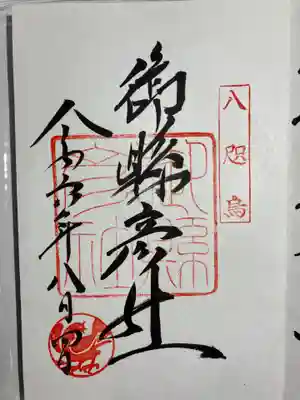 八咫烏
御縣彦社
令和六年八月